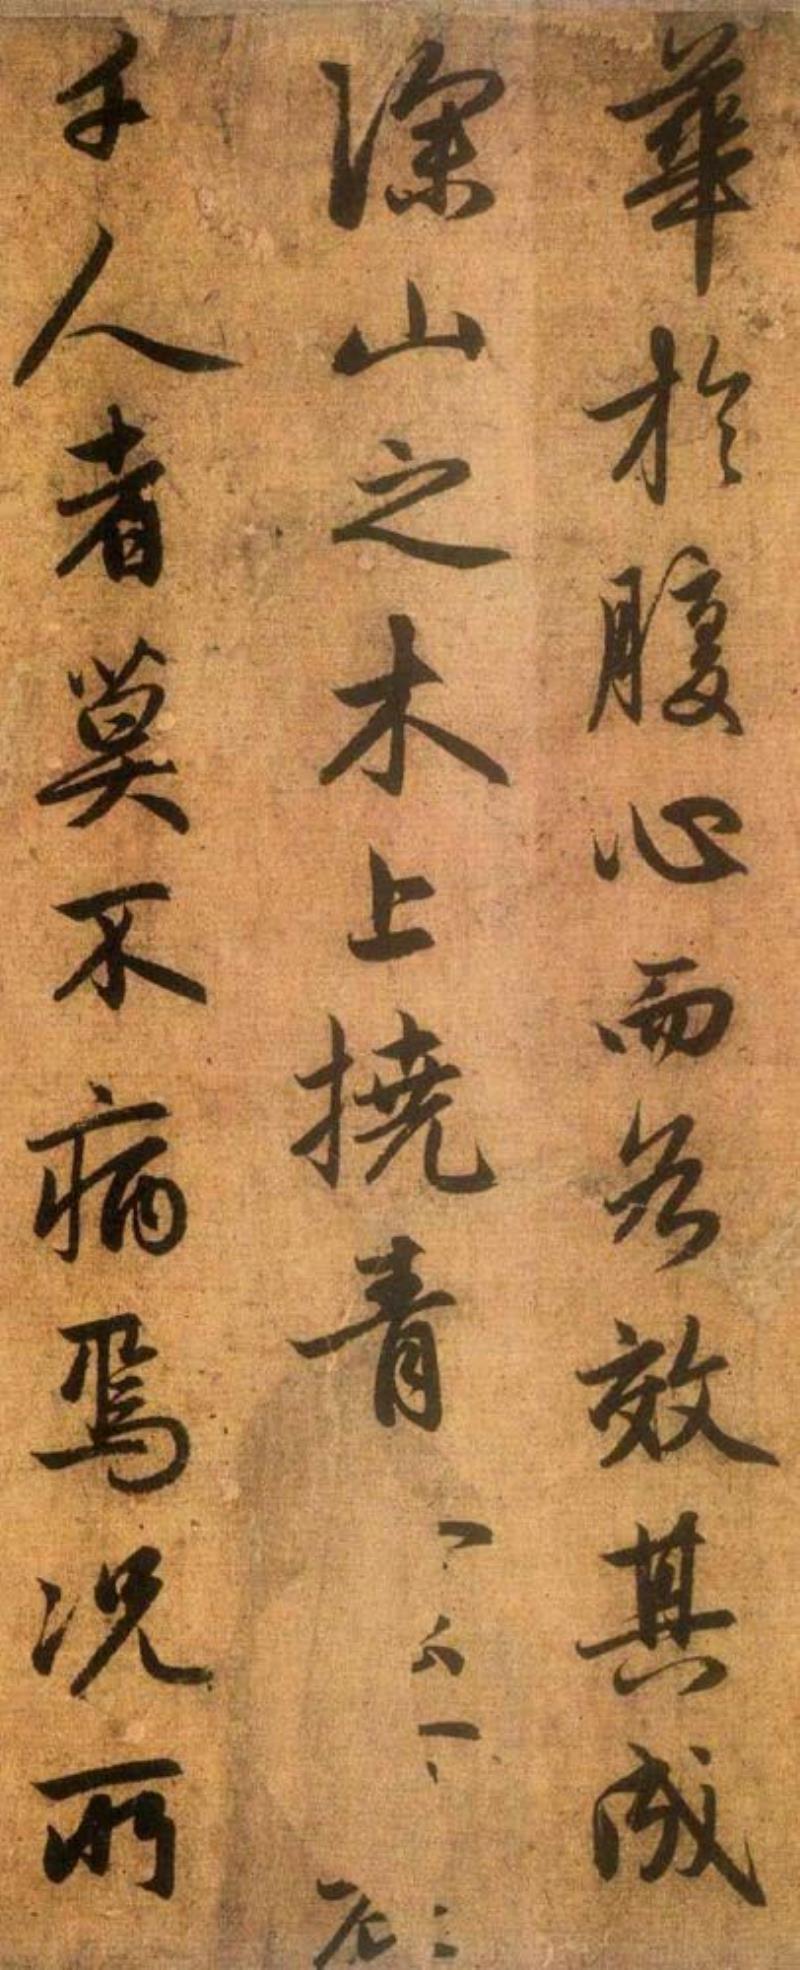 華於腹心而為效其成
深山之木上撓青
千人者莫不病焉況所